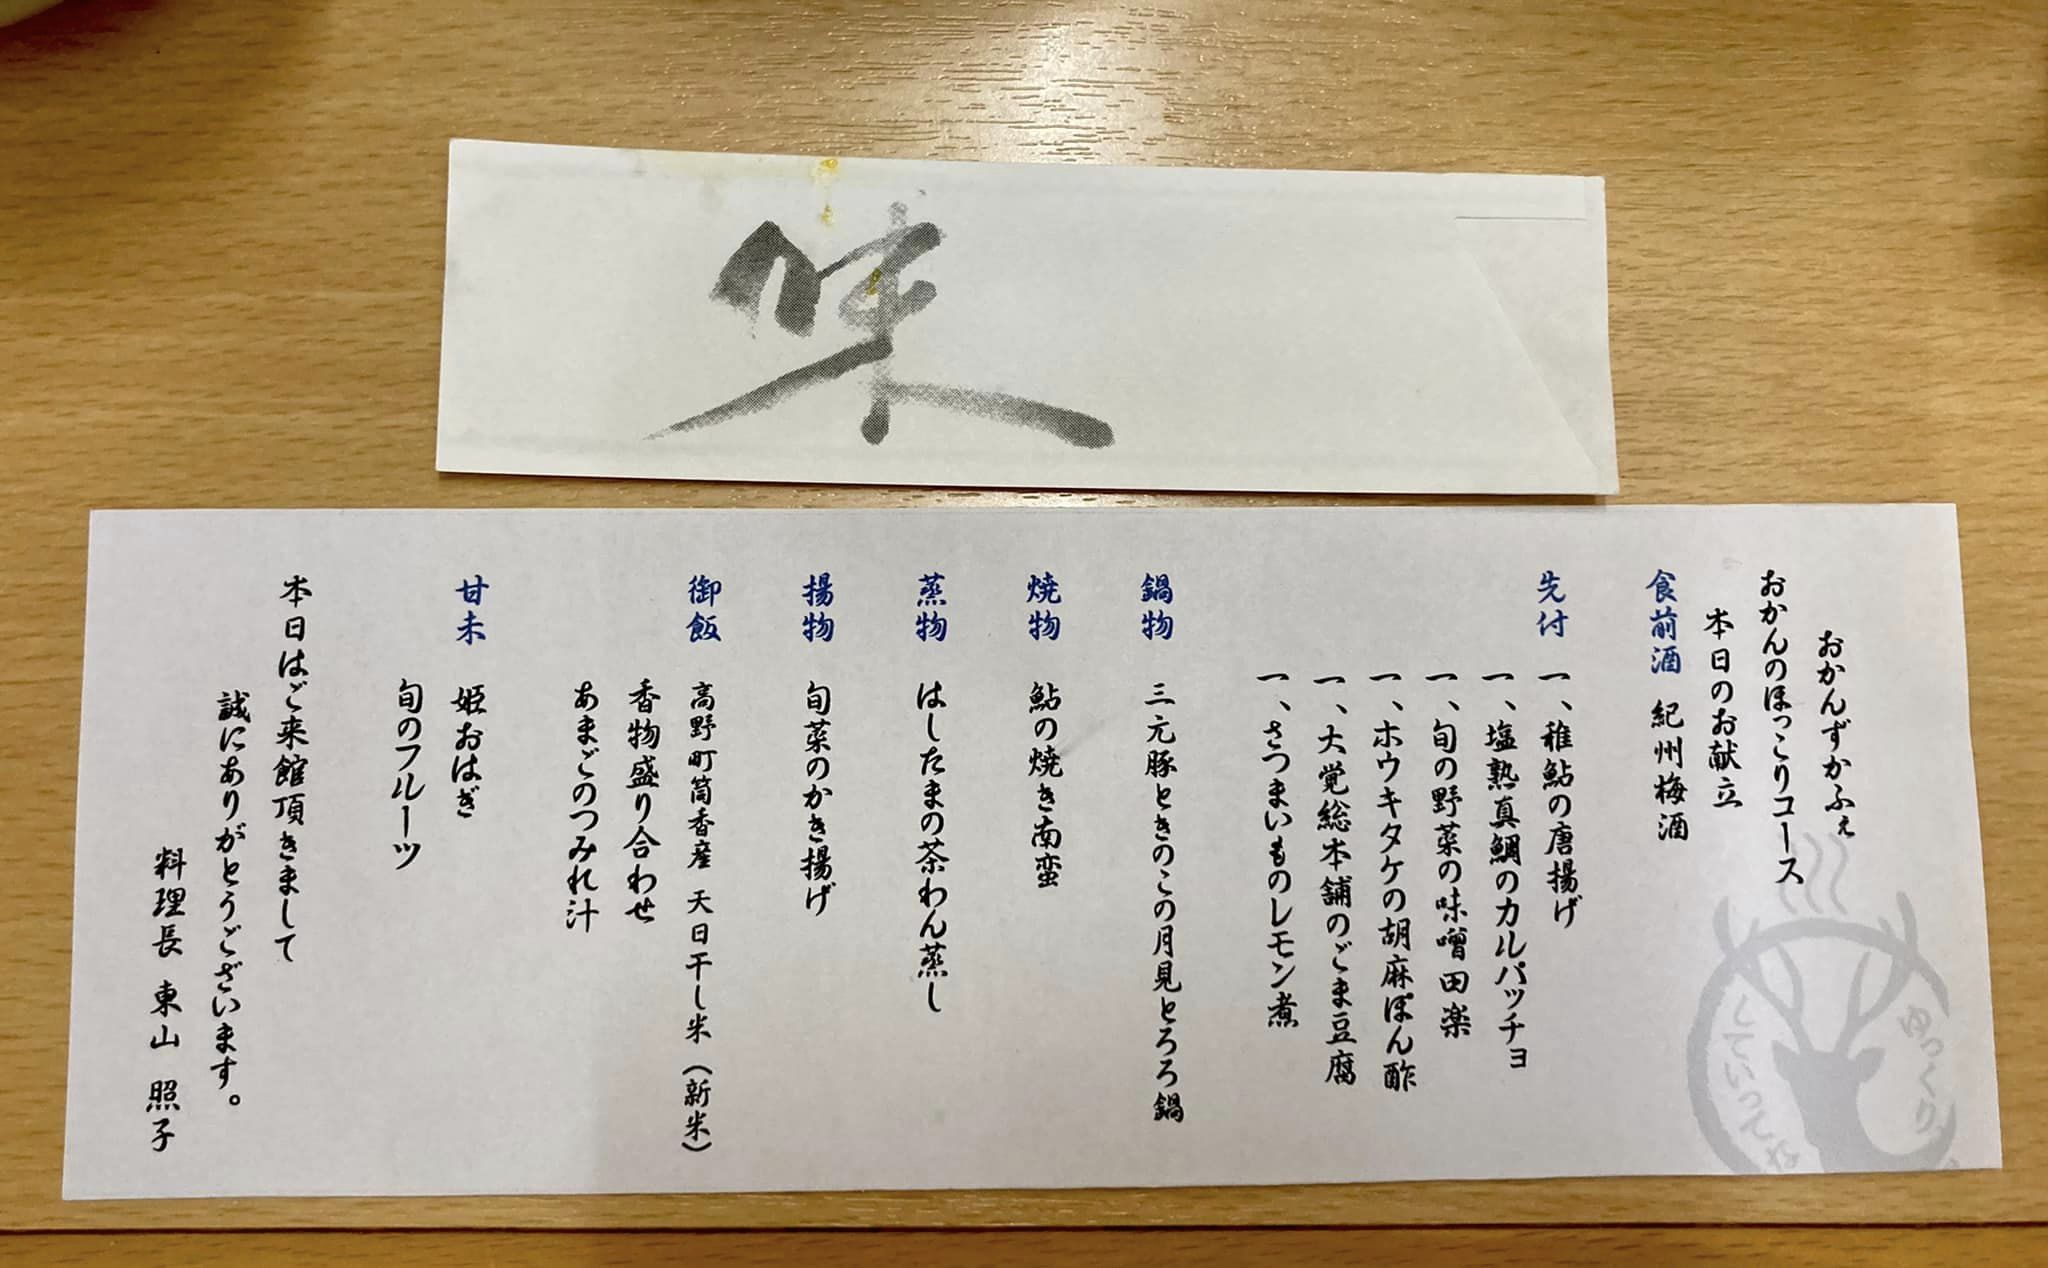 味
おかんずかふぇ
おかんのほっこりコース
本日のお献立
食前酒 紀州梅酒
先付 一、稚鮎の唐揚げ
一、塩熟真鯛のカルパッチョ
一、旬の野菜の味噌田楽
一、ホウキタケの胡麻ぽん酢
一、大覚総本舗のごま豆腐
一、さつまいものレモン煮
鍋物 三元豚ときのこの月見とろろ鍋
焼物 鮎の焼き南蛮
蒸物 はしたまの茶わん蒸し
揚物 旬菜のかき揚げ
御飯 高野町筒香産 天日干し米（新米）
香物盛り合わせ
あまごのつみれ汁
甘未 姫おはぎ
旬のフルーツ
本日はご来館頂きまして
誠にありがとうございます。
料理長 東山 照子
ゆっくり
していってね